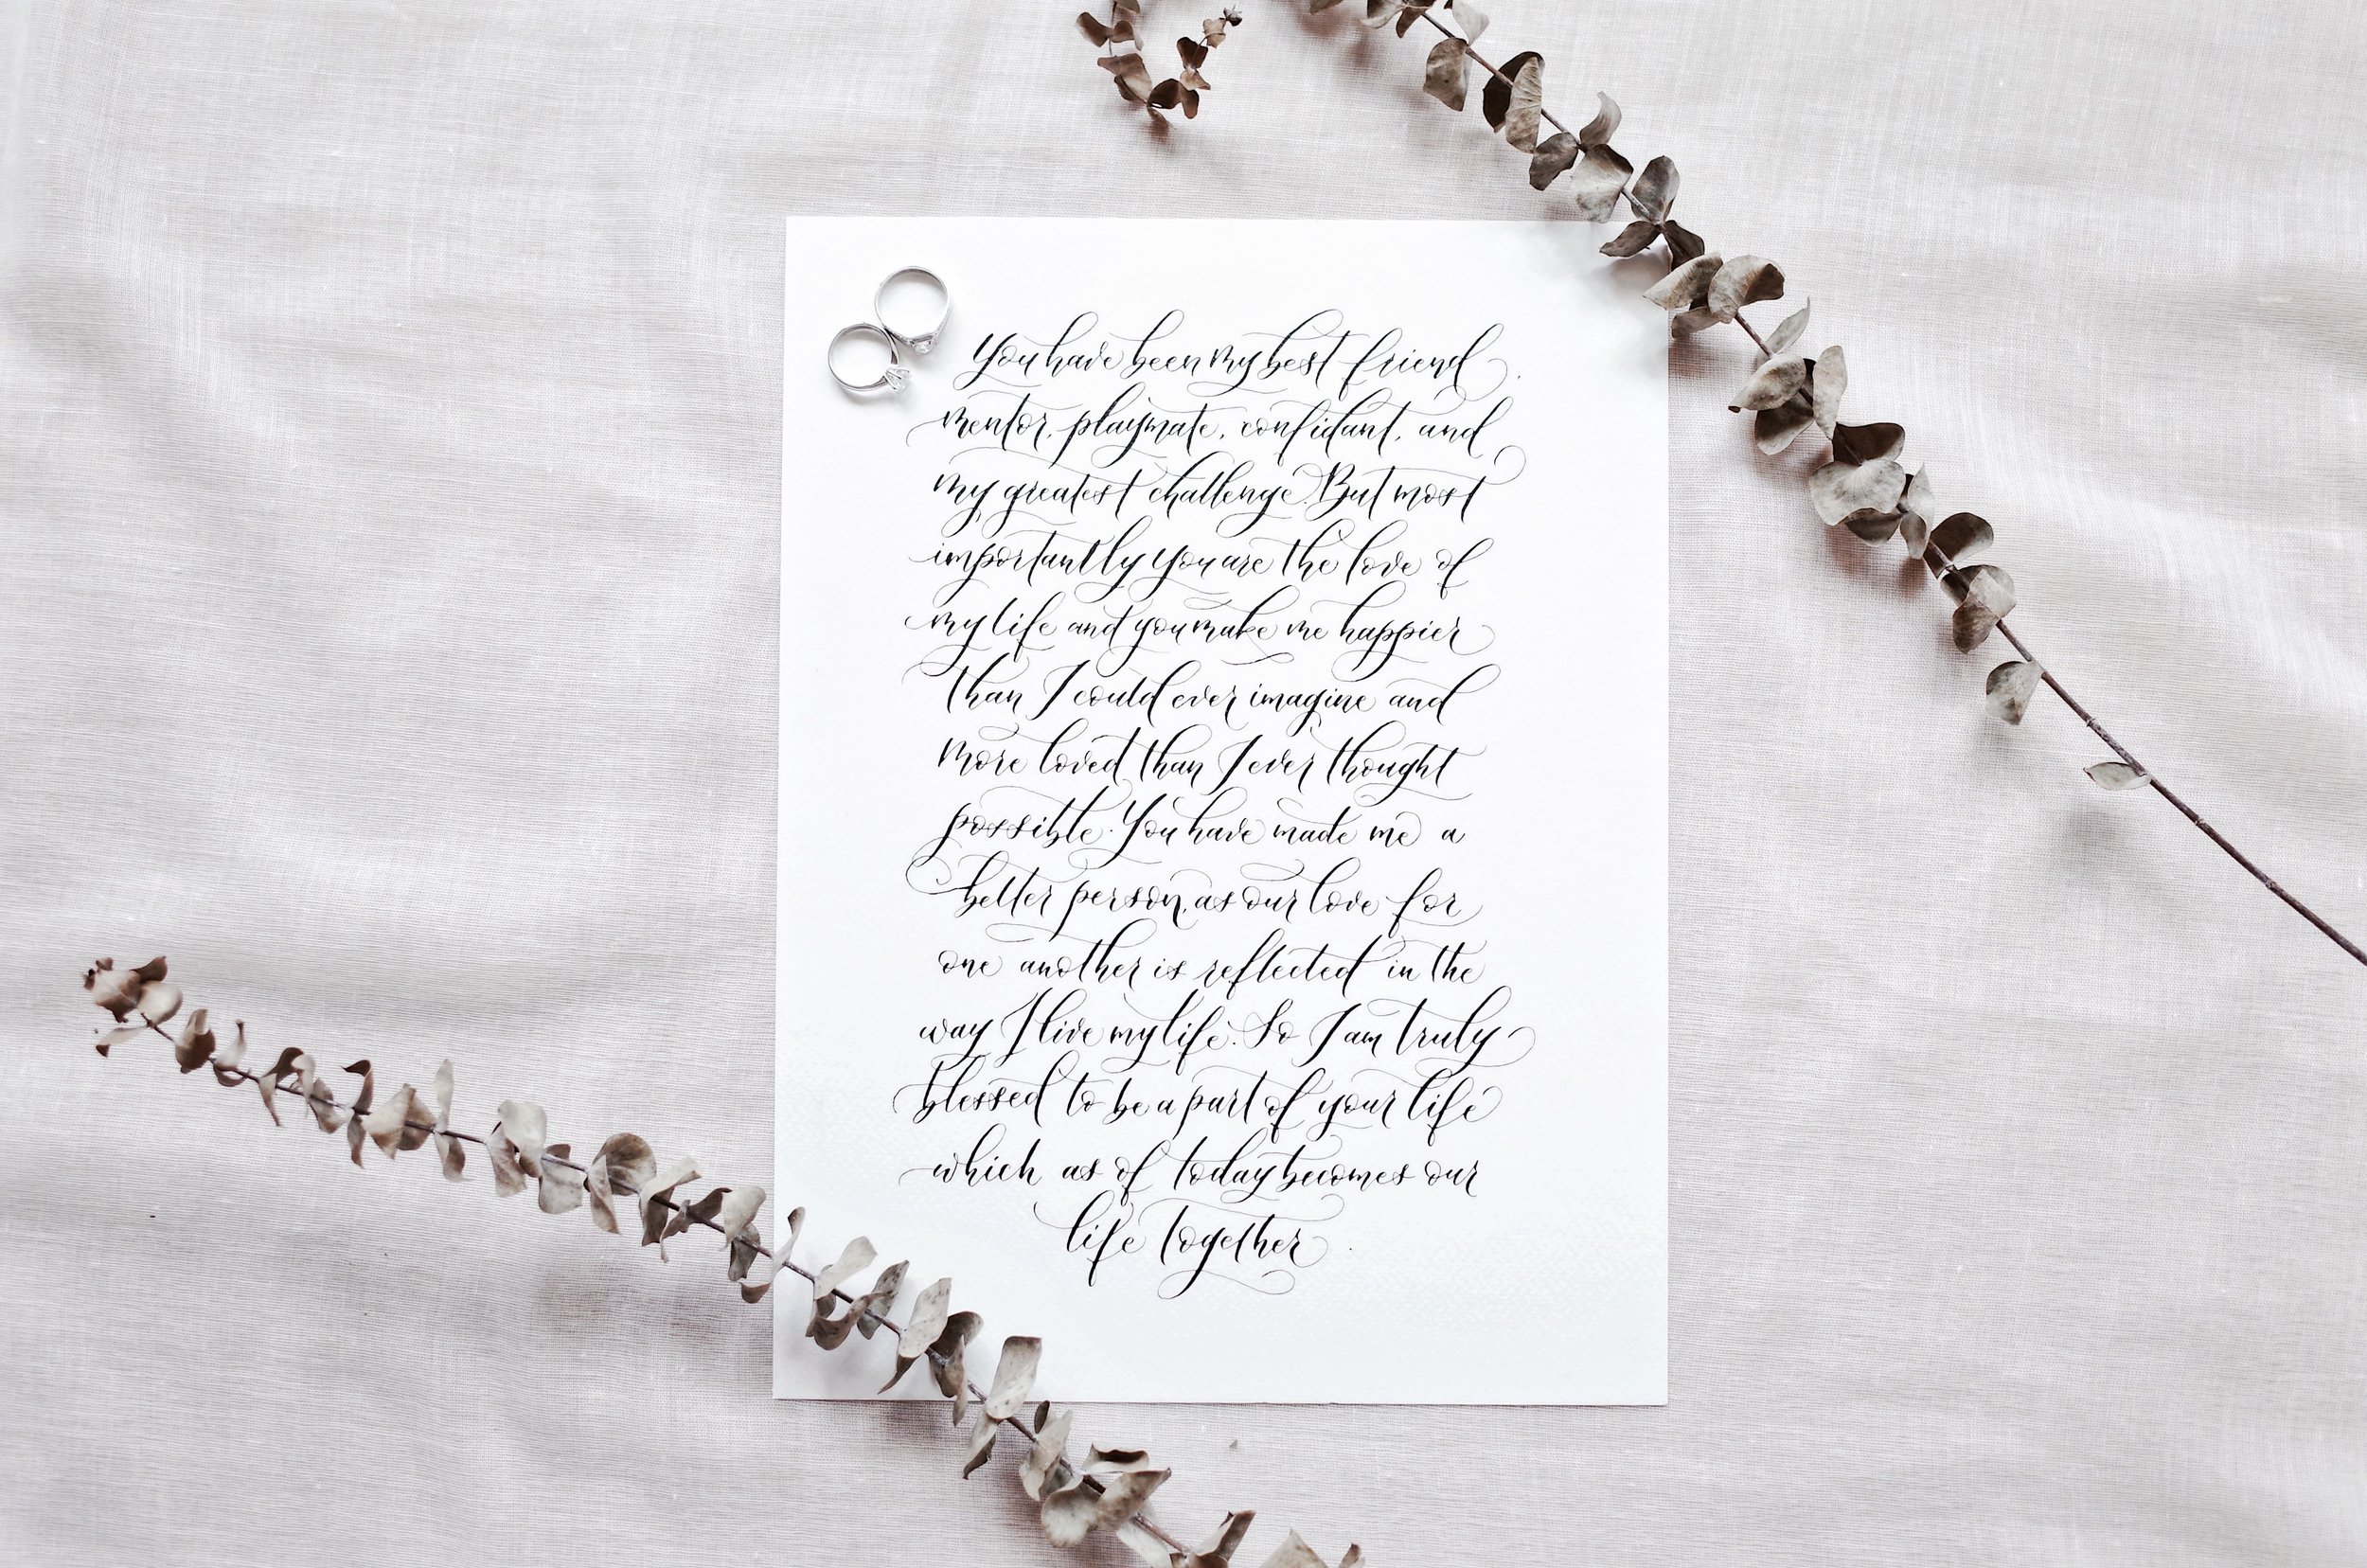 You have been my best friend
mentor, playmate, confidant, and
my greatest challenge. But most
importantly you are the love of
my life and you make me happier
than I could ever imagine and
more loved than I ever thought
possible. You have made me a
better person, as our love for
one another is reflected in the
way I live my life. So I am truly
blessed to be a part of your life
which as of today becomes our
life together.